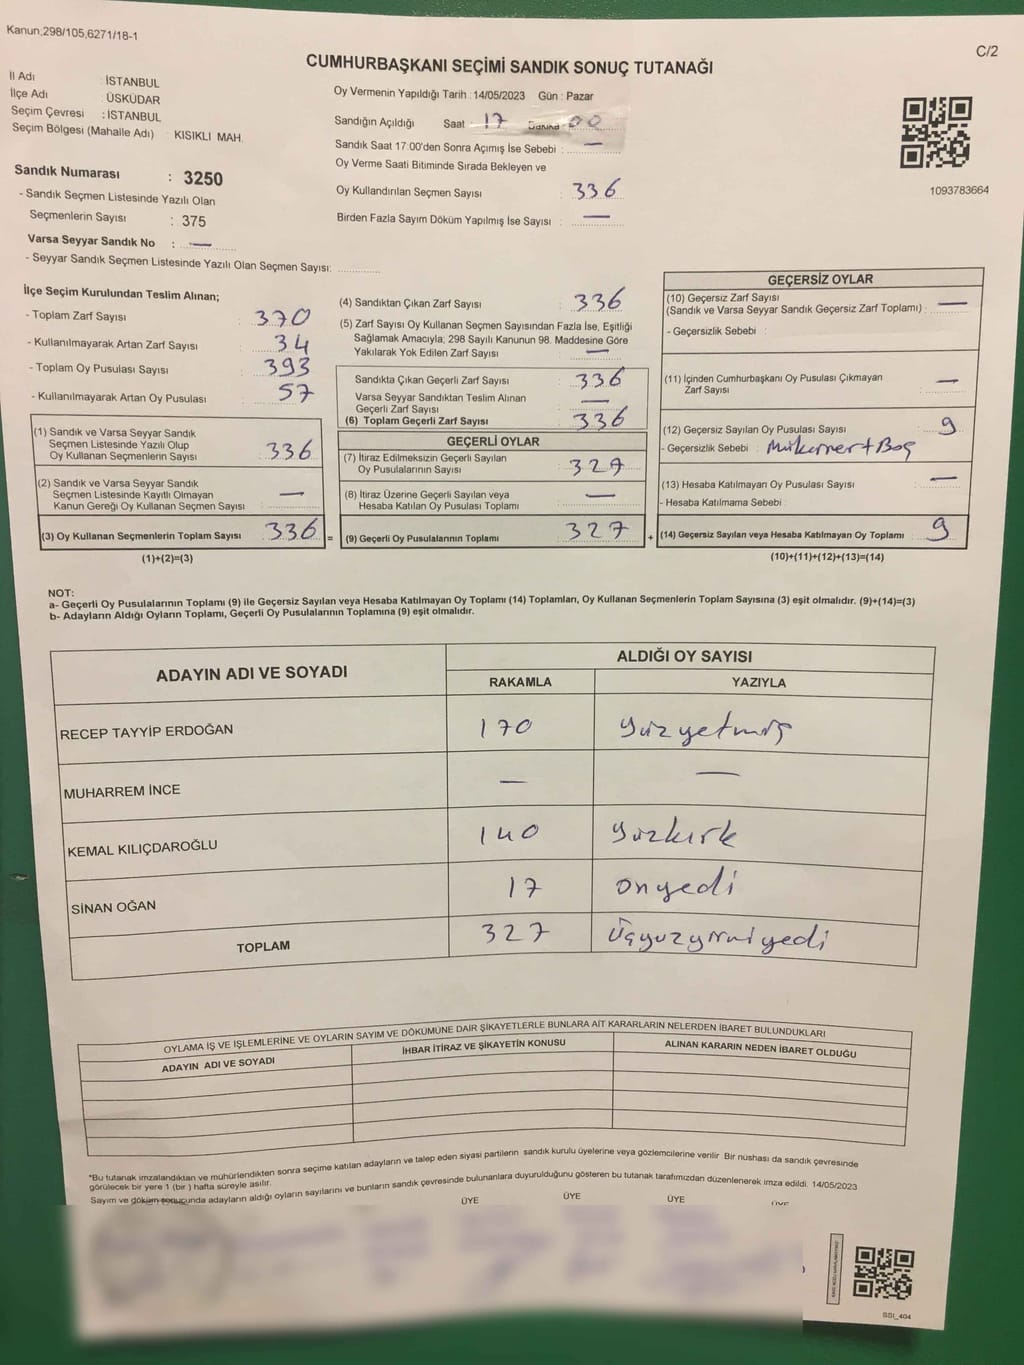 Kanun,298/105,6271/18-1
C/2
CUMHURBAŞKANI SEÇİMİ SANDIK SONUÇ TUTANAĞI
İl Adı : İSTANBUL
İlçe Adı : ÜSKÜDAR
Seçim Çevresi : İSTANBUL
Seçim Bölgesi (Mahalle Adı) : KISIKLI MAH.
Sandık Numarası : 3250
- Sandık Seçmen Listesinde Yazılı Olan
Seçmenlerin Sayısı : 375
Varsa Seyyar Sandık No : —
- Seyyar Sandık Seçmen Listesinde Yazılı Olan Seçmen Sayısı:
Oy Vermenin Yapıldığı Tarih : 14/05/2023 Gün : Pazar
Sandığın Açıldığı Saat : 17 Dakika 00
Sandık Saat 17:00'den Sonra Açımış İse Sebebi : —
Oy Verme Saati Bitiminde Sırada Bekleyen ve
Oy Kullandırılan Seçmen Sayısı : 336
Birden Fazla Sayım Döküm Yapılmış İse Sayısı : —
1093783664
İlçe Seçim Kurulundan Teslim Alınan;
- Toplam Zarf Sayısı : 370
- Kullanılmayarak Artan Zarf Sayısı : 34
- Toplam Oy Pusulası Sayısı : 393
- Kullanılmayarak Artan Oy Pusulası : 57
(1) Sandık ve Varsa Seyyar Sandık
Seçmen Listesinde Yazılı Olup
Oy Kullanan Seçmenlerin Sayısı : 336
(2) Sandık ve Varsa Seyyar Sandık
Seçmen Listesinde Kayıtlı Olmayan
Kanun Gereği Oy Kullanan Seçmen Sayısı : —
(3) Oy Kullanan Seçmenlerin Toplam Sayısı : 336 =
(1)+(2)=(3)
(4) Sandıktan Çıkan Zarf Sayısı : 336
(5) Zarf Sayısı Oy Kullanan Seçmen Sayısından Fazla İse, Eşitliği
Sağlamak Amacıyla; 298 Sayılı Kanunun 98. Maddesine Göre
Yakılarak Yok Edilen Zarf Sayısı : —
Sandıkta Çıkan Geçerli Zarf Sayısı : 336
Varsa Seyyar Sandıktan Teslim Alınan
Geçerli Zarf Sayısı : —
(6) Toplam Geçerli Zarf Sayısı : 336
GEÇERLİ OYLAR
(7) İtiraz Edilmeksizin Geçerli Sayılan
Oy Pusulalarının Sayısı : 327
(8) İtiraz Üzerine Geçerli Sayılan veya
Hesaba Katılan Oy Pusulası Toplamı : —
(9) Geçerli Oy Pusulalarının Toplamı : 327 +
GEÇERSİZ OYLAR
(10) Geçersiz Zarf Sayısı
(Sandık ve Varsa Seyyar Sandık Geçersiz Zarf Toplamı) : —
- Geçersizlik Sebebi :
(11) İçinden Cumhurbaşkanı Oy Pusulası Çıkmayan
Zarf Sayısı : —
(12) Geçersiz Sayılan Oy Pusulası Sayısı : 9
- Geçersizlik Sebebi : Mükerrer+Boş
(13) Hesaba Katılmayan Oy Pusulası Sayısı : —
- Hesaba Katılmama Sebebi :
(14) Geçersiz Sayılan veya Hesaba Katılmayan Oy Toplamı : 9
(10)+(11)+(12)+(13)=(14)
NOT:
a- Geçerli Oy Pusulalarının Toplamı (9) ile Geçersiz Sayılan veya Hesaba Katılmayan Oy Toplamı (14) Toplamları, Oy Kullanan Seçmenlerin Toplam Sayısına (3) eşit olmalıdır. (9)+(14)=(3)
b- Adayların Aldığı Oyların Toplamı, Geçerli Oy Pusulalarının Toplamına (9) eşit olmalıdır.
ADAYIN ADI VE SOYADI
ALDIĞI OY SAYISI
RAKAMLA YAZIYLA
RECEP TAYYİP ERDOĞAN 170 yüzyetmiş
MUHARREM İNCE — —
KEMAL KILIÇDAROĞLU 140 yüzkırk
SİNAN OĞAN 17 onyedi
TOPLAM 327 Üçyüzyirmiyedi
OYLAMA İŞ VE İŞLEMLERİNE VE OYLARIN SAYIM VE DÖKÜMÜNE DAİR ŞİKAYETLERLE BUNLARA AİT KARARLARIN NELERDEN İBARET BULUNDUKLARI
ADAYIN ADI VE SOYADI İHBAR İTİRAZ VE ŞİKAYETİN KONUSU ALINAN KARARIN NEDEN İBARET OLDUĞU
*Bu tutanak imzalandıktan ve mühürlendikten sonra seçime katılan adayların ve talep eden siyasi partilerin sandık kurulu üyelerine veya gözlemcilerine verilir Bir nüshası da sandık çevresinde
görülecek bir yere 1 (bir ) hafta süreyle asılır.
Sayım ve döküm sonucunda adayların aldığı oyların sayılarını ve bunların sandık çevresinde bulunanlara duyurulduğunu gösteren bu tutanak tarafımızdan düzenlenerek imza edildi. 14/05/2023
ÜYE ÜYE ÜYE ÜYE
SSI_404